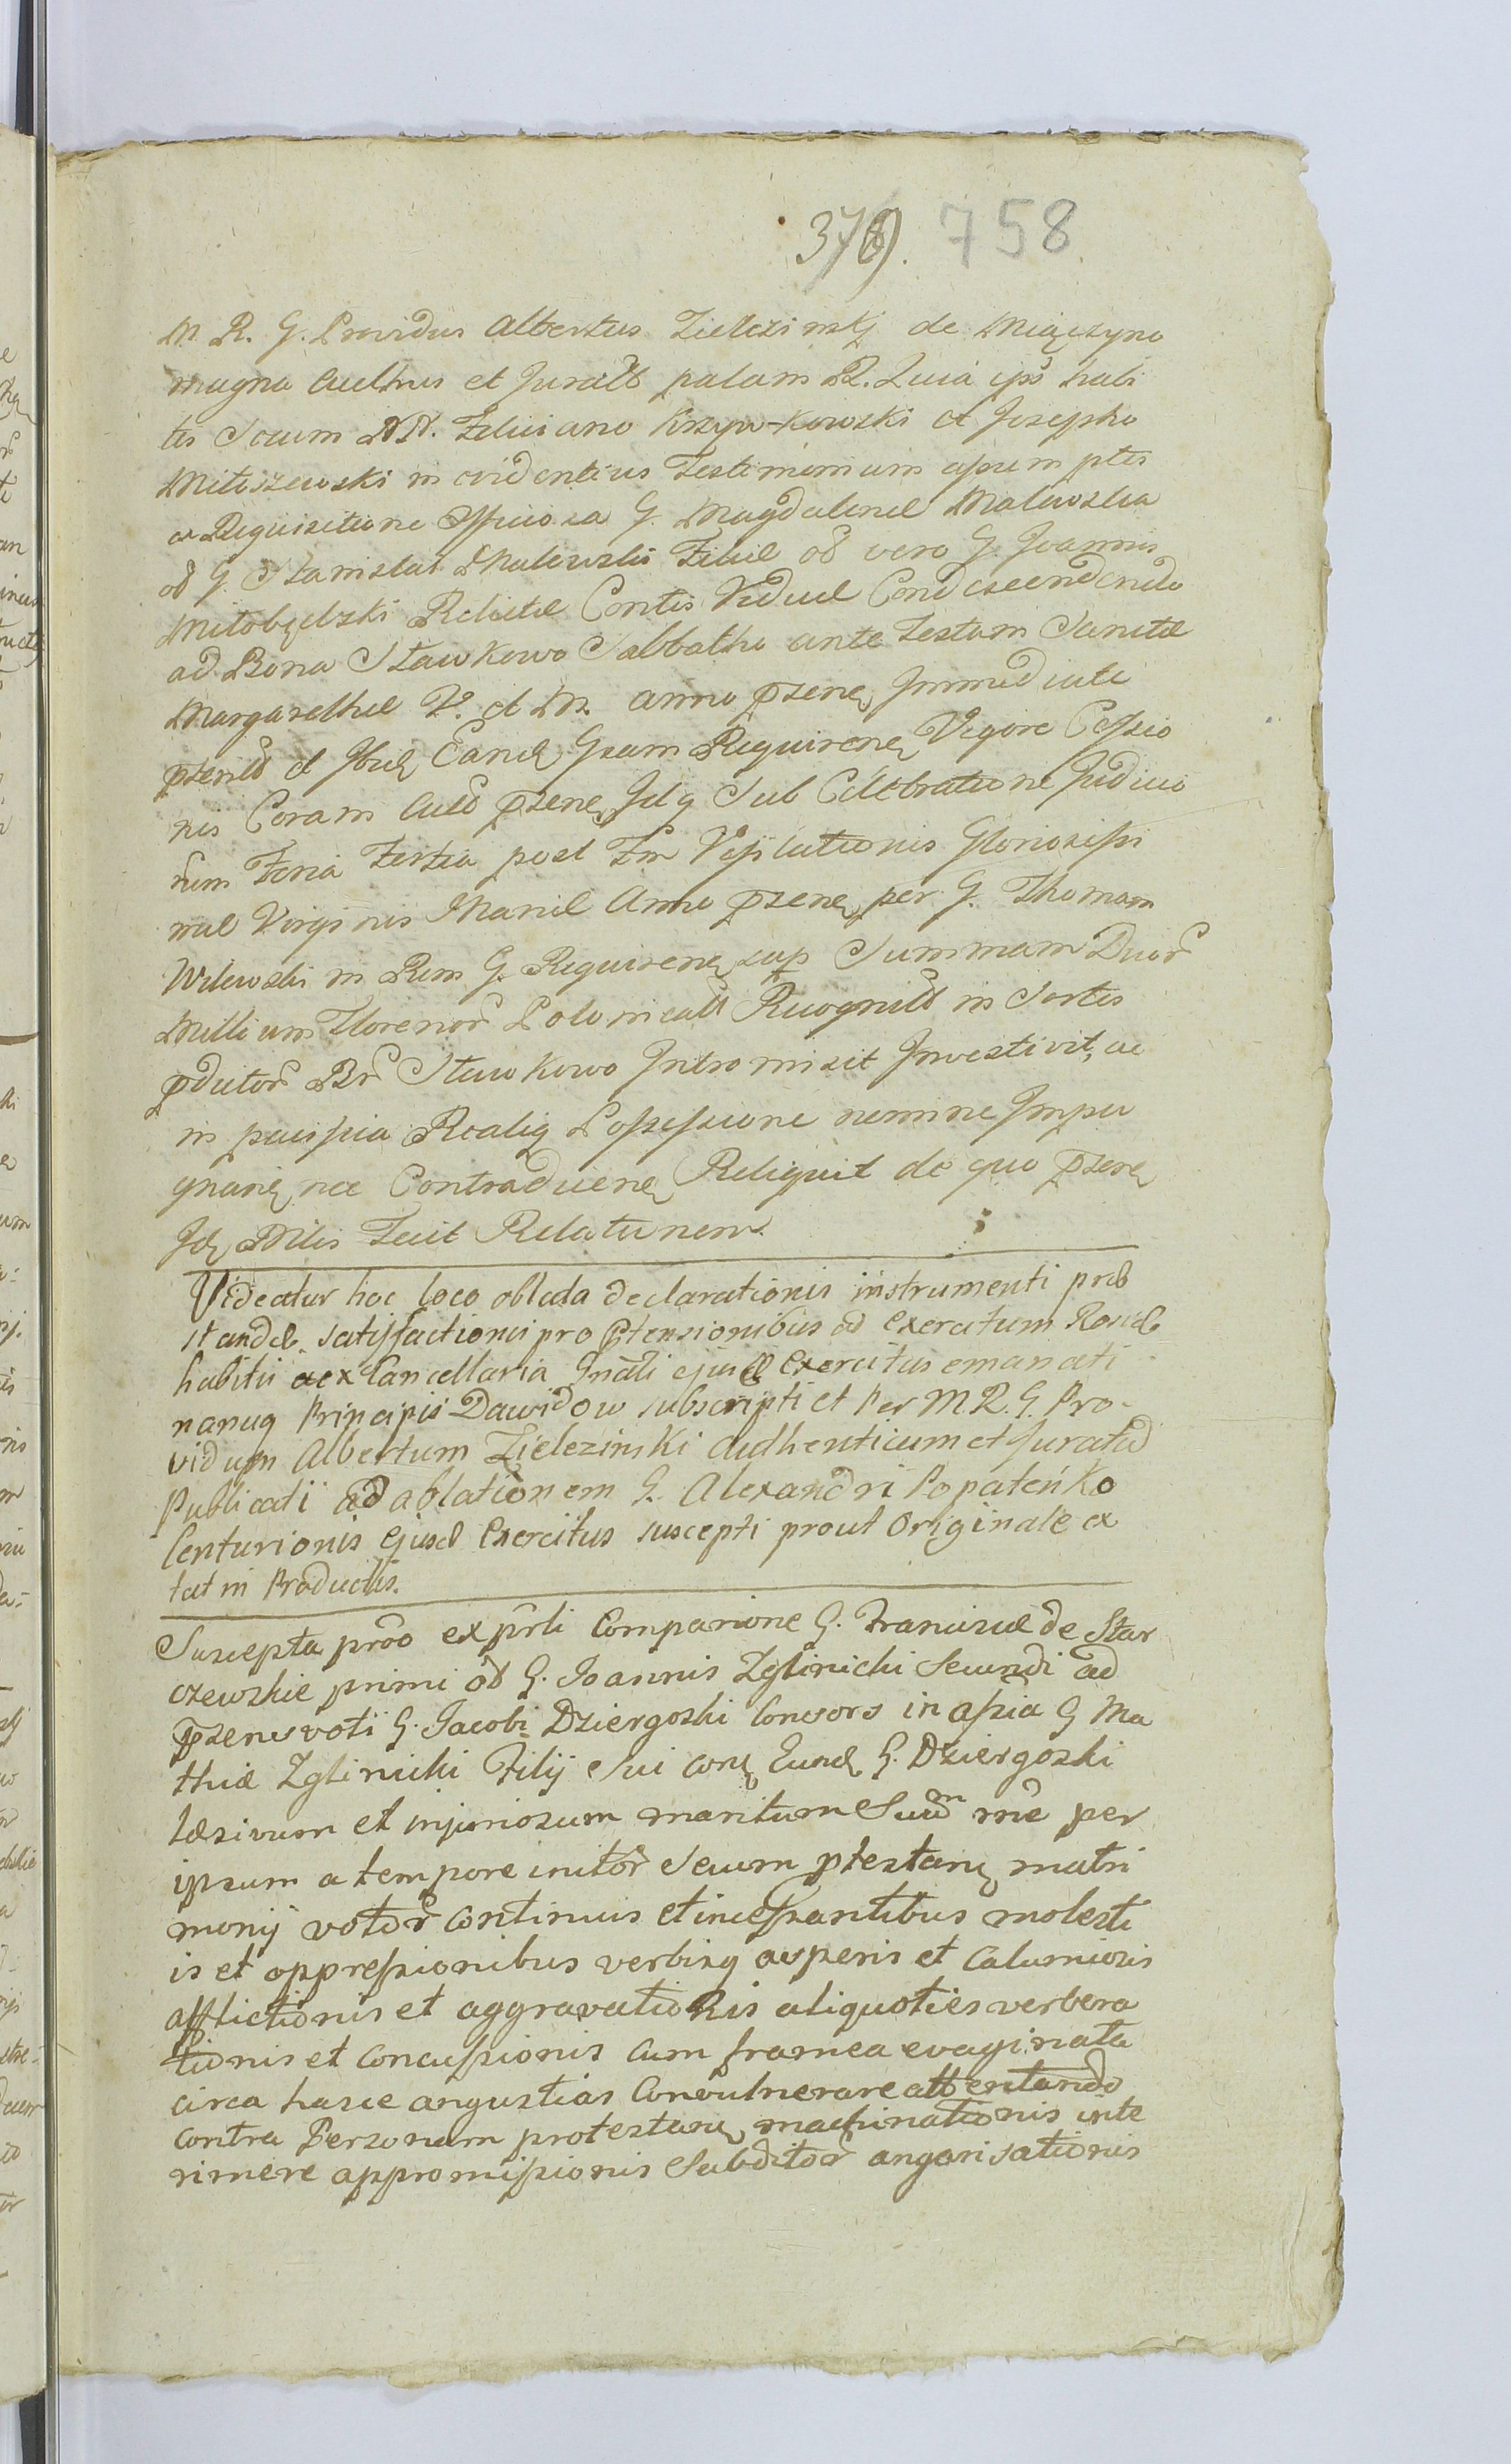 376). 758
M. R. G. Providus Albertus Zielezinskj de Miączyno
magna Auctnus et Juratt palam R. Quia ips habi
tis Secum NN. Feliciano Krzyw-Kowski et Josepho
Mitoszewski in evidentius Testimonium assumptis
a Requisitione Officiosa G. Magdalenæ Malewska
od G. Stanislai Malewski Filiæ od vero G. Joannis
Mitobędzki Relictæ Contis Viduæ Condescendendo
ad Bona Stawkowo Sabbatho ante Festum Sanctæ
Margarethæ V. et M. anno pzene Immediate
pzenltt et Ibid Eand Gsam Requirene Vigore Cessio
nis Coram Actt pzene Idq Sub Celebratione Judicio
rum Feria Tertia post Fm Visitationis Gloriosissi
mæ Virginis Mariæ Anno pzene per G. Thomam
Wilewski in Rem G. Requirene sup Summam Duor
Millium Florenor Polonicall Recognitt in Sortes
pdictor Br Stawkowo Intromisit Investivit, ac
in pacifica Realiq Possessione nemine Impu
gnane nec Contradicene Reliquit de quo pzene
Id Milis Fecit Relationem.
Videatur hoc loco oblata declarationis instrumenti præ
standæ satisfactionis pro ptensionibus ad Exercitum Rosiæ
habitii ac ex Cancellaria Gnali ejusd Exercitus emanati
manuq Principis Dawidow subscripti et Per M. R. G. Pro-
vidum Albertum Zielezinski Authenticum et Juratū
Publicati ad ablationem G. Alexandri Popateńko
Centurionis Ejusd Exercitus suscepti prout Originale ex
tat in Productis.
Suscepta prōo ex prli Comparione G. Francisæ de Star
czewskie primi od G. Joannis Zglinicki Secundi ad
pzens voti G. Jacobi Dziergoski Consors in assia G Ma
thiæ Zglinicki Filij Sui cone Eund G. Dziergoski
læsivum et injuriosum maritum Suum mē per
ipsum a tempore initōr Secum ptestane matri
monij votōr continuis et incessantibus molesti
is et oppressionibus verbisq asperis et Calumiosis
afflictionis et aggravationis aliquoties verbera
tionis et concussionis cum framea evaginata
circa hasce angustias Convulnerare attentando
contra Personam protestane machinationis inte
rimere appromissionis Subditor angarisationis